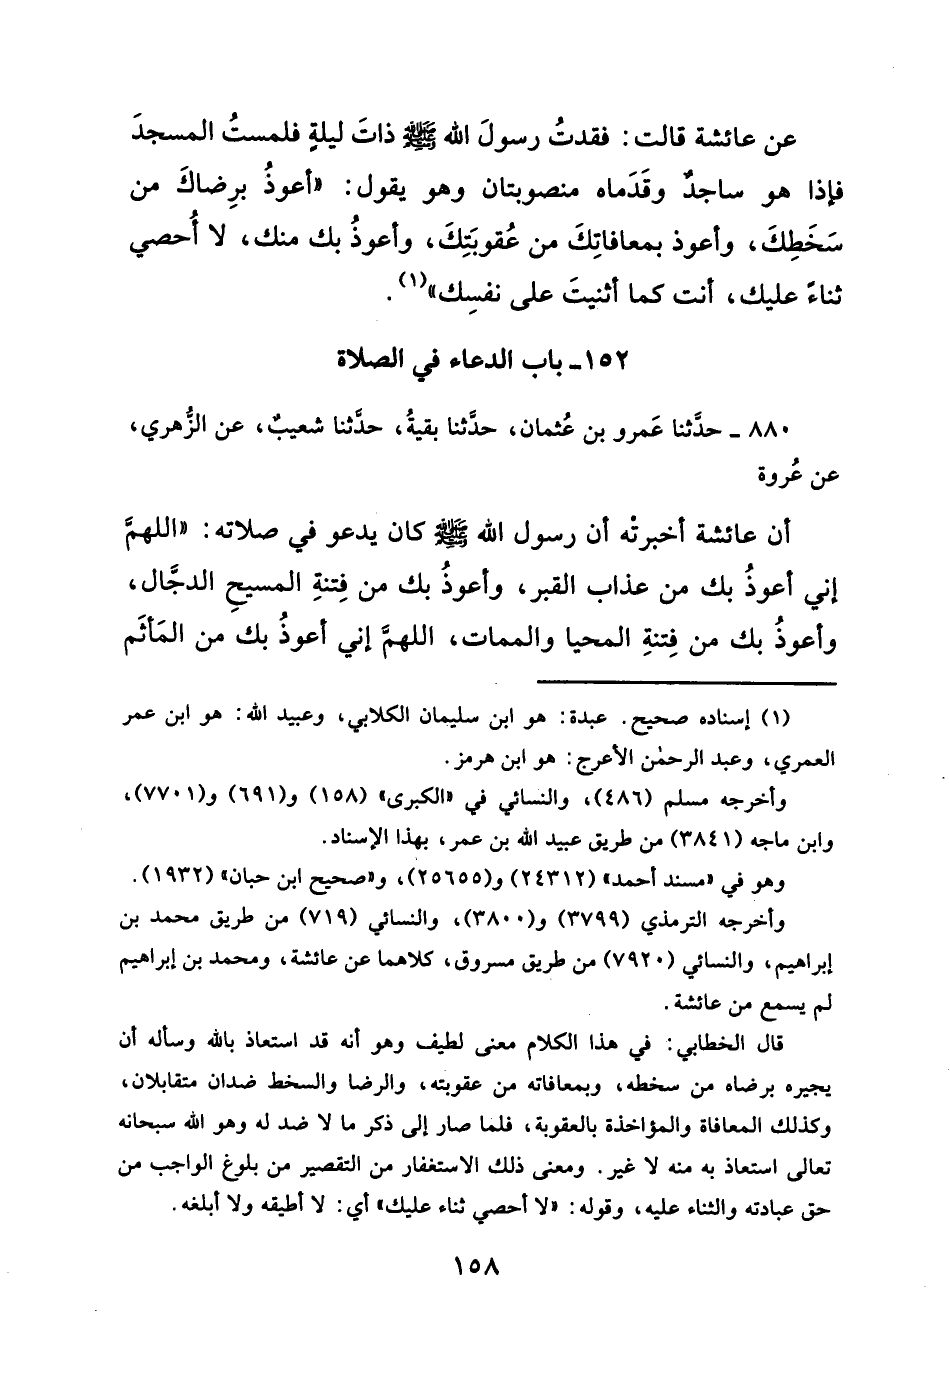 عن عائشة قالت: فقدتُ رسولَ الله ﷺ ذاتَ ليلةٍ فلمستُ المسجدَ
فإذا هو ساجدٌ وقَدَماه منصوبتان وهو يقول: «أعوذُ برِضاكَ من
سَخَطِكَ، وأعوذ بمعافاتِكَ من عُقوبَتِكَ، وأعوذُ بك منك، لا أُحصي
ثناءً عليك، أنت كما أثنيتَ على نفسِك»(١).
١٥٢ ـ باب الدعاء في الصلاة
٨٨٠ ـ حدَّثنا عَمرو بن عُثمان، حدَّثنا بقيةُ، حدَّثنا شعيبٌ، عن الزُّهري،
عن عُروة
أن عائشة أخبرتْه أن رسول الله ﷺ كان يدعو في صلاته: «اللهمَّ
إني أعوذُ بك من عذاب القبر، وأعوذُ بك من فِتنةِ المسيحِ الدجَّال،
وأعوذُ بك من فِتنةِ المحيا والممات، اللهمَّ إني أعوذُ بك من المَأثَم
(١) إسناده صحيح. عبدة: هو ابن سليمان الكلابي، وعبيد الله: هو ابن عمر
العمري، وعبد الرحمٰن الأعرج: هو ابن هرمز.
وأخرجه مسلم (٤٨٦)، والنسائي في «الكبرى» (١٥٨) و(٦٩١) و(٧٧٠١)،
وابن ماجه (٣٨٤١) من طريق عبيد الله بن عمر، بهذا الإسناد.
وهو في «مسند أحمد» (٢٤٣١٢) و(٢٥٦٥٥)، و«صحيح ابن حبان» (١٩٣٢).
وأخرجه الترمذي (٣٧٩٩) و(٣٨٠٠)، والنسائي (٧١٩) من طريق محمد بن
إبراهيم، والنسائي (٧٩٢٠) من طريق مسروق، كلاهما عن عائشة، ومحمد بن إبراهيم
لم يسمع من عائشة.
قال الخطابي: في هذا الكلام معنى لطيف وهو أنه قد استعاذ بالله وسأله أن
يجيره برضاه من سخطه، وبمعافاته من عقوبته، والرضا والسخط ضدان متقابلان،
وكذلك المعافاة والمؤاخذة بالعقوبة، فلما صار إلى ذكر ما لا ضد له وهو الله سبحانه
تعالى استعاذ به منه لا غير. ومعنى ذلك الاستغفار من التقصير من بلوغ الواجب من
حق عبادته والثناء عليه، وقوله: «لا أحصي ثناء عليك» أي: لا أطيقه ولا أبلغه.
١٥٨